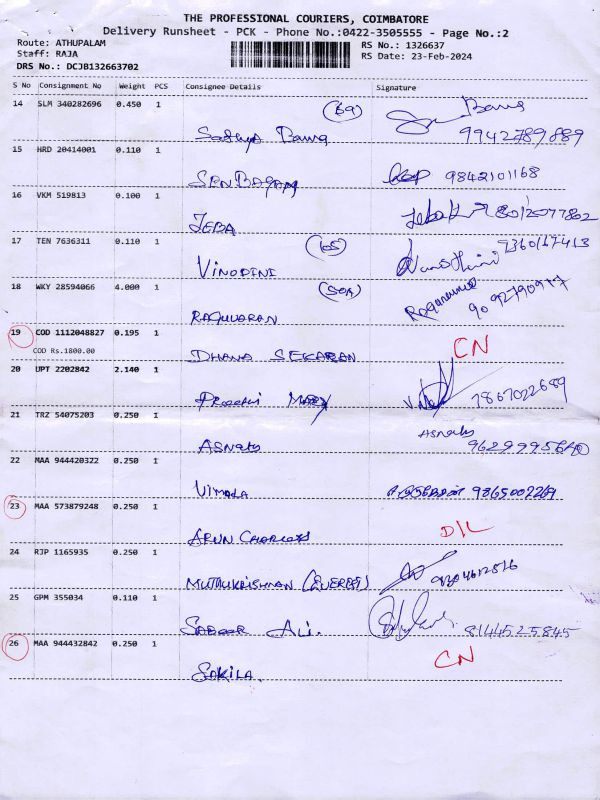 THE PROFESSIONAL COURIERS, COIMBATORE
Delivery Runsheet - PCK - Phone No.:0422-3505555 - Page No.:2
Route: ATHUPALAM
Staff: RAJA
DRS No.: DCJB132663702
RS No.: 1326637
RS Date: 23-Feb-2024
S No Consignment No Weight PCS Consignee Details Signature
14 SLM 340282696 0.450 1
(69)
Sathya Bama 9942789889
15 HRD 20414001 0.110 1
9842101168
16 VKM 519813 0.100 1
JEBA
17 TEN 7636311 0.110 1
(65)
VINODINI
18 WKY 28594066 4.000 1
(50A)
RAGUVARAN
19 COD 1112048827 0.195 1
COD Rs.1800.00
DHANA SEKARAN CN
20 UPT 2202842 2.140 1
7867022689
21 TRZ 54075203 0.250 1
22 MAA 944420322 0.250 1
VIMALA
23 MAA 573879248 0.250 1
D/L
24 RJP 1165935 0.250 1
25 GPM 355034 0.110 1
ALI. 8144525845
26 MAA 944432842 0.250 1
SAKILA. CN